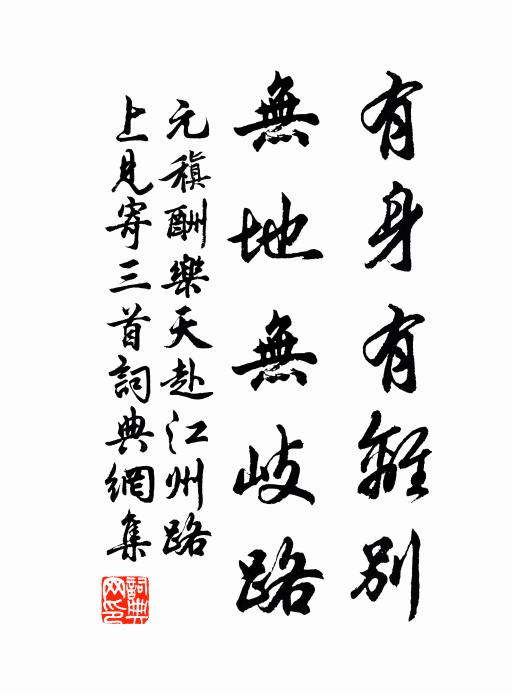 有身有離別
無地無岐路
元稹酬樂天赴江州路
上見寄三首詞典網集
詞典网印